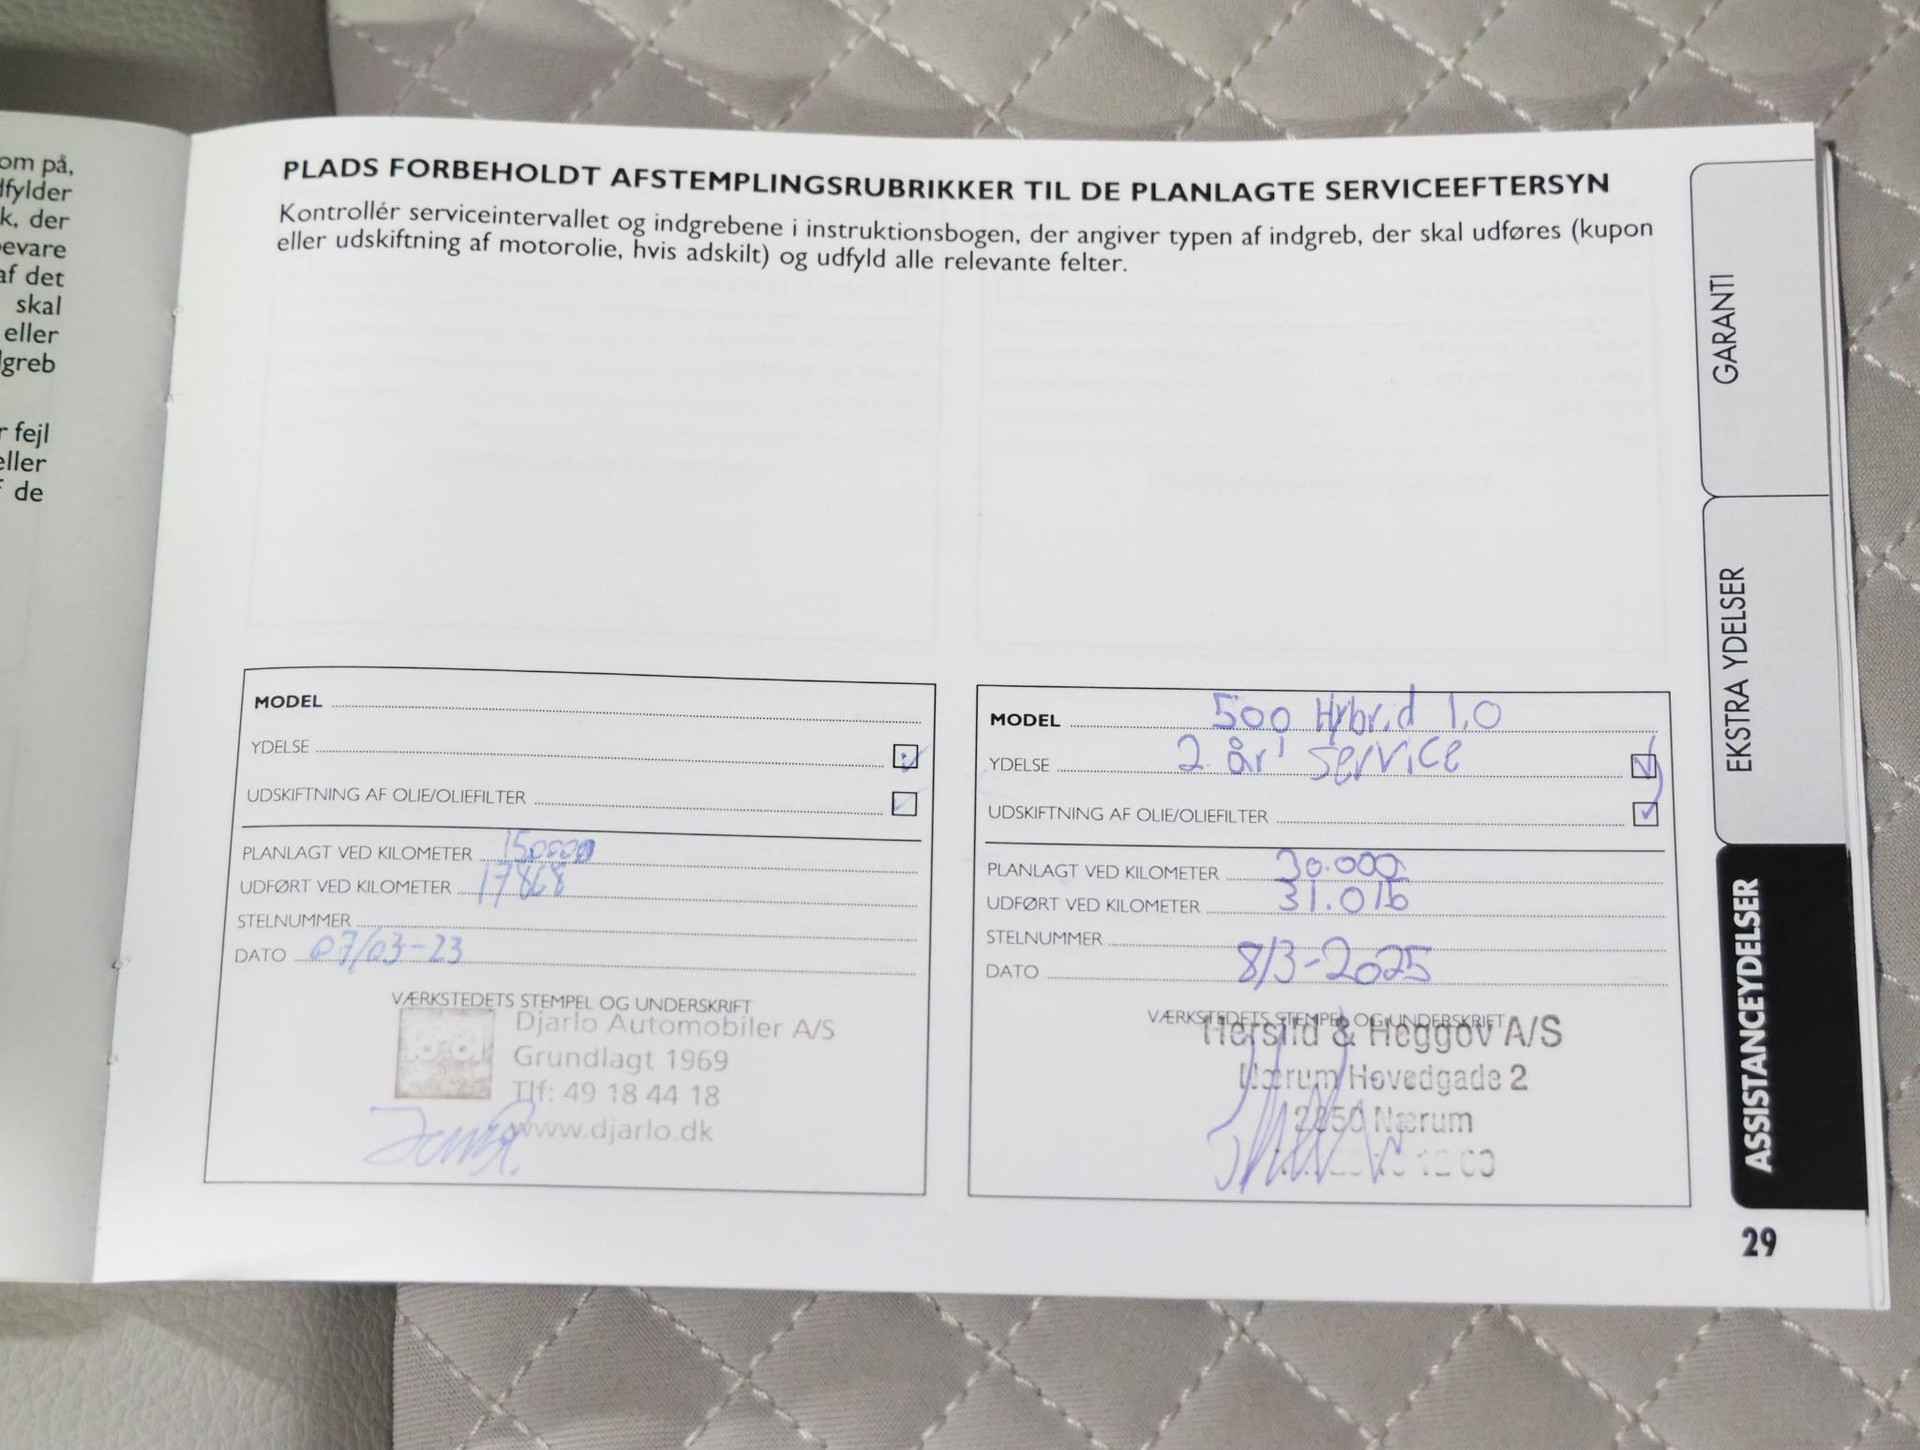 om på,
dfylder
k, der
bevare
af det
skal
eller
dgreb
r fejl
eller
f de
PLADS FORBEHOLDT AFSTEMPLINGSRUBRIKKER TIL DE PLANLAGTE SERVICEEFTERSYN
Kontrollér serviceintervallet og indgrebene i instruktionsbogen, der angiver typen af indgreb, der skal udføres (kupon
eller udskiftning af motorolie, hvis adskilt) og udfyld alle relevante felter.
MODEL
YDELSE
UDSKIFTNING AF OLIE/OLIEFILTER
PLANLAGT VED KILOMETER 150000
UDFØRT VED KILOMETER 17868
STELNUMMER
DATO 07/03-23
VÆRKSTEDETS STEMPEL OG UNDERSKRIFT
Djarlo Automobiler A/S
Grundlagt 1969
Tlf: 49 18 44 18
www.djarlo.dk
MODEL 500 Hybrid 1.0
YDELSE 2 år' service
UDSKIFTNING AF OLIE/OLIEFILTER
PLANLAGT VED KILOMETER 30.000
UDFØRT VED KILOMETER 31.016
STELNUMMER
DATO 8/3-2025
VÆRKSTEDETS STEMPEL OG UNDERSKRIFT
& Heggov A/S
Nærum Hovedgade 2
2850 Nærum
GARANTI
EKSTRA YDELSER
ASSISTANCEYDELSER
29